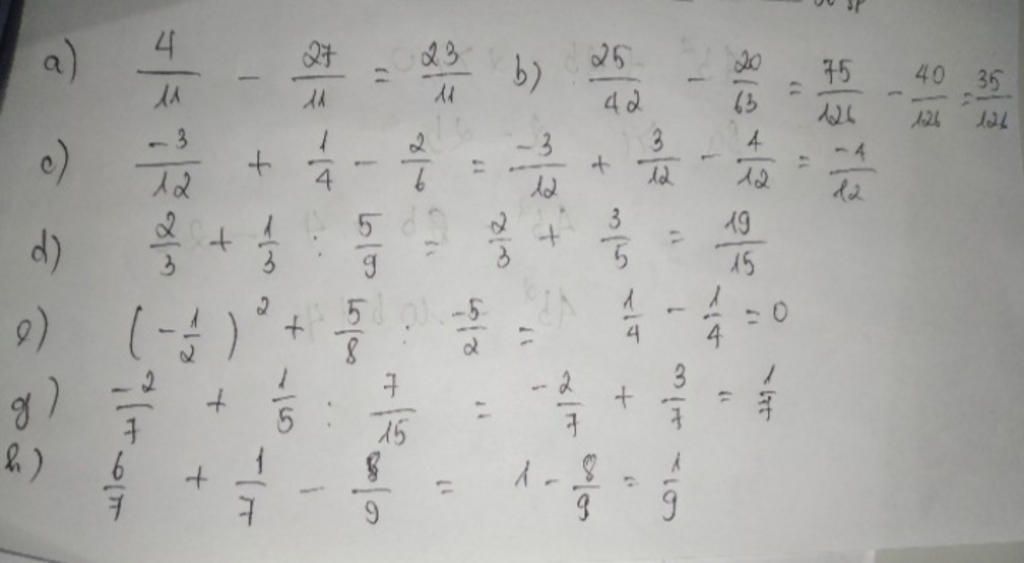 a) 4/11 - 27/11 = 23/11 b) 25/42 - 20/63 = 75/126 - 40/126 = 35/126
c) -3/12 + 1/4 - 2/6 = -3/12 + 3/12 - 4/12 = -4/12
d) 2/3 + 1/3 : 5/9 = 2/3 + 3/5 = 19/15
e) (-1/2)² + 5/8 : -5/2 = 1/4 - 1/4 = 0
g) -2/7 + 1/5 : 7/15 = -2/7 + 3/7 = 1/7
h) 6/7 + 1/7 - 8/9 = 1 - 8/9 = 1/9